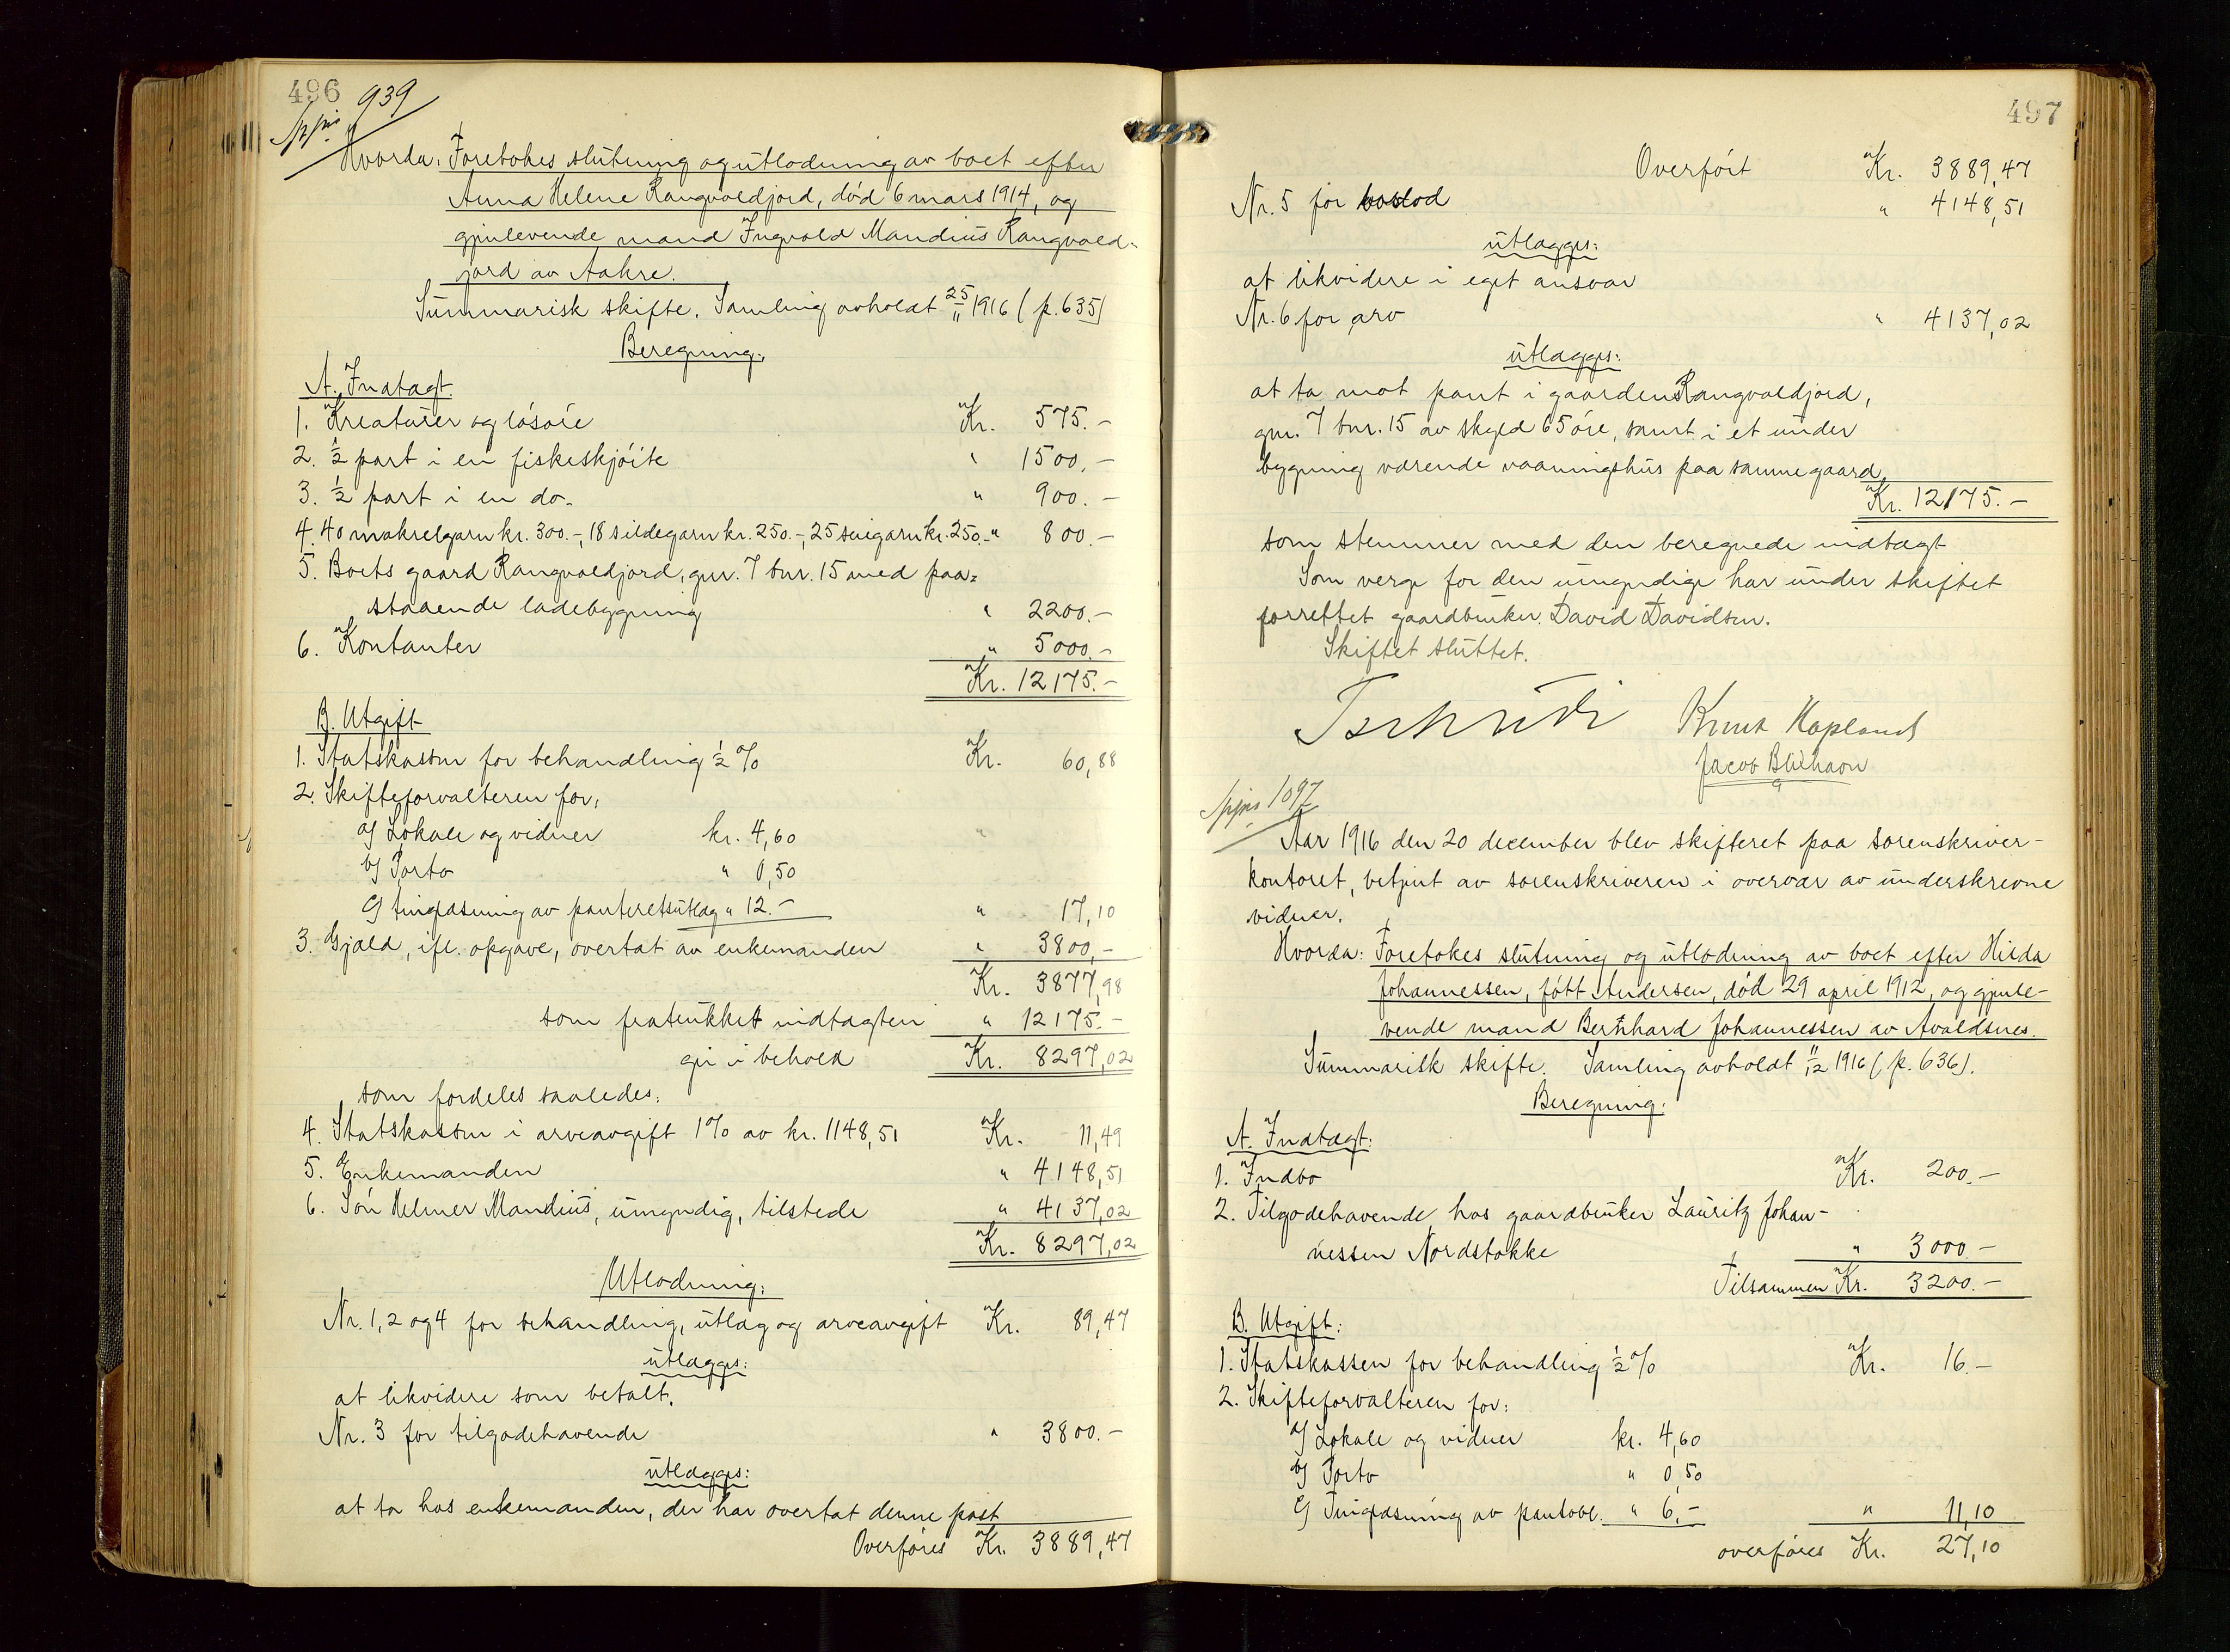 496
939
Hvorda: Foretokes slutning og utlodning av boet efter
Anna Helene Rangvaldjord, død 6 mars 1914, og
gjenlevende mand Ingvald Mandius Rangvald-
jord av Aakre.
Summarisk skifte. Samling avholdt 25/11 1916 (p. 635)
Beregning:
A. Indtægt.
1. Kreaturer og løsøre Kr. 575.-
2. ½ part i en fiskeskjøite " 1500.-
3. ½ part i en do. " 900.-
4. 40 makrelgarn kr. 300.-, 18 sildegarn kr. 250.-, 25 seigarn kr. 250.- " 800.-
5. Boets gaard Rangvaldjord, gnr. 7 bnr. 15 med paa=
staaende ladebygning " 2200.-
6. Kontanter " 5000.-
Kr. 12175.-
B. Utgift
1. Statskassen for behandling ½ % Kr. 60,88
2. Skifteforvalteren for:
a) Lokale og vidner kr. 4,60 "
b) Porto " 0,50
c) tinglæsning av panteretsutlæg " 12.- " 17,10
3. Gjæld, ifl. opgave, overtat av enkemanden " 3800,-
Kr. 3877,98
som fratrukket indtægten " 12175.-
gir i behold Kr. 8297,02
som fordeles saaledes:
4. Statskassen i arveavgift 1% av kr. 1148,51 Kr. 11,49
5. Enkemanden " 4148,51
6. Søn Helmer Mandius, umyndig, tilstede " 4137,02
Kr. 8297,02
Utlodning:
Nr. 1, 2 og 4 for behandling, utlæg og arveavgift Kr. 89,47
utlægges:
at likvidere som betalt.
Nr. 3 for tilgodehavende " 3800.-
utlægges:
at ta hos enkemanden, der har overtat denne post
Overføres Kr. 3889,47
497
Overført Kr. 3889,47
Nr. 5 for boslod " 4148,51
utlægges:
at likvidere i eget ansvar
Nr. 6 for arv " 4137,02
utlægges:
at ta mot pant i gaarden Rangvaldjord,
gnr. 7 bnr. 15 av skyld 65 øre, samt i et under
bygning værende vaaningshus paa samme gaard
Kr. 12175.-
som stemmer med den beregnede indtægt
Som verge for den umyndige har under skiftet
forrettet gaardbruker David Davidsen.
Skiftet sluttet.
Tschudi Knut Hapland
Jacob
1097
Aar 1916 den 20 december blev skifteret paa sorenskriver-
kontoret, betjent av sorenskriveren i overvær av underskrevne
vidner.
Hvorda: Foretokes slutning og utlodning av boet efter Hilda
Johannessen, født Andersen, død 29 april 1912, og gjenle-
vende mand Bernhard Johannessen av Avaldsnes.
Summarisk skifte. Samling avholdt 11/12 1916 (p. 636).
Beregning:
A. Indtægt:
1. Indbo Kr. 200.-
2. Tilgodehavende hos gaardbruker Lauritz Johan-
nessen Nordstokke " 3000.-
Tilsammen Kr. 3200.-
B. Utgift:
1. Statskassen for behandling ½ % Kr. 16.-
2. Skifteforvalteren for:
a) Lokale og vidner kr. 4,60
b) Porto " 0,50
c) Tinglæsning av pantobl. " 6,- " 11,10
overføres Kr. 27,10